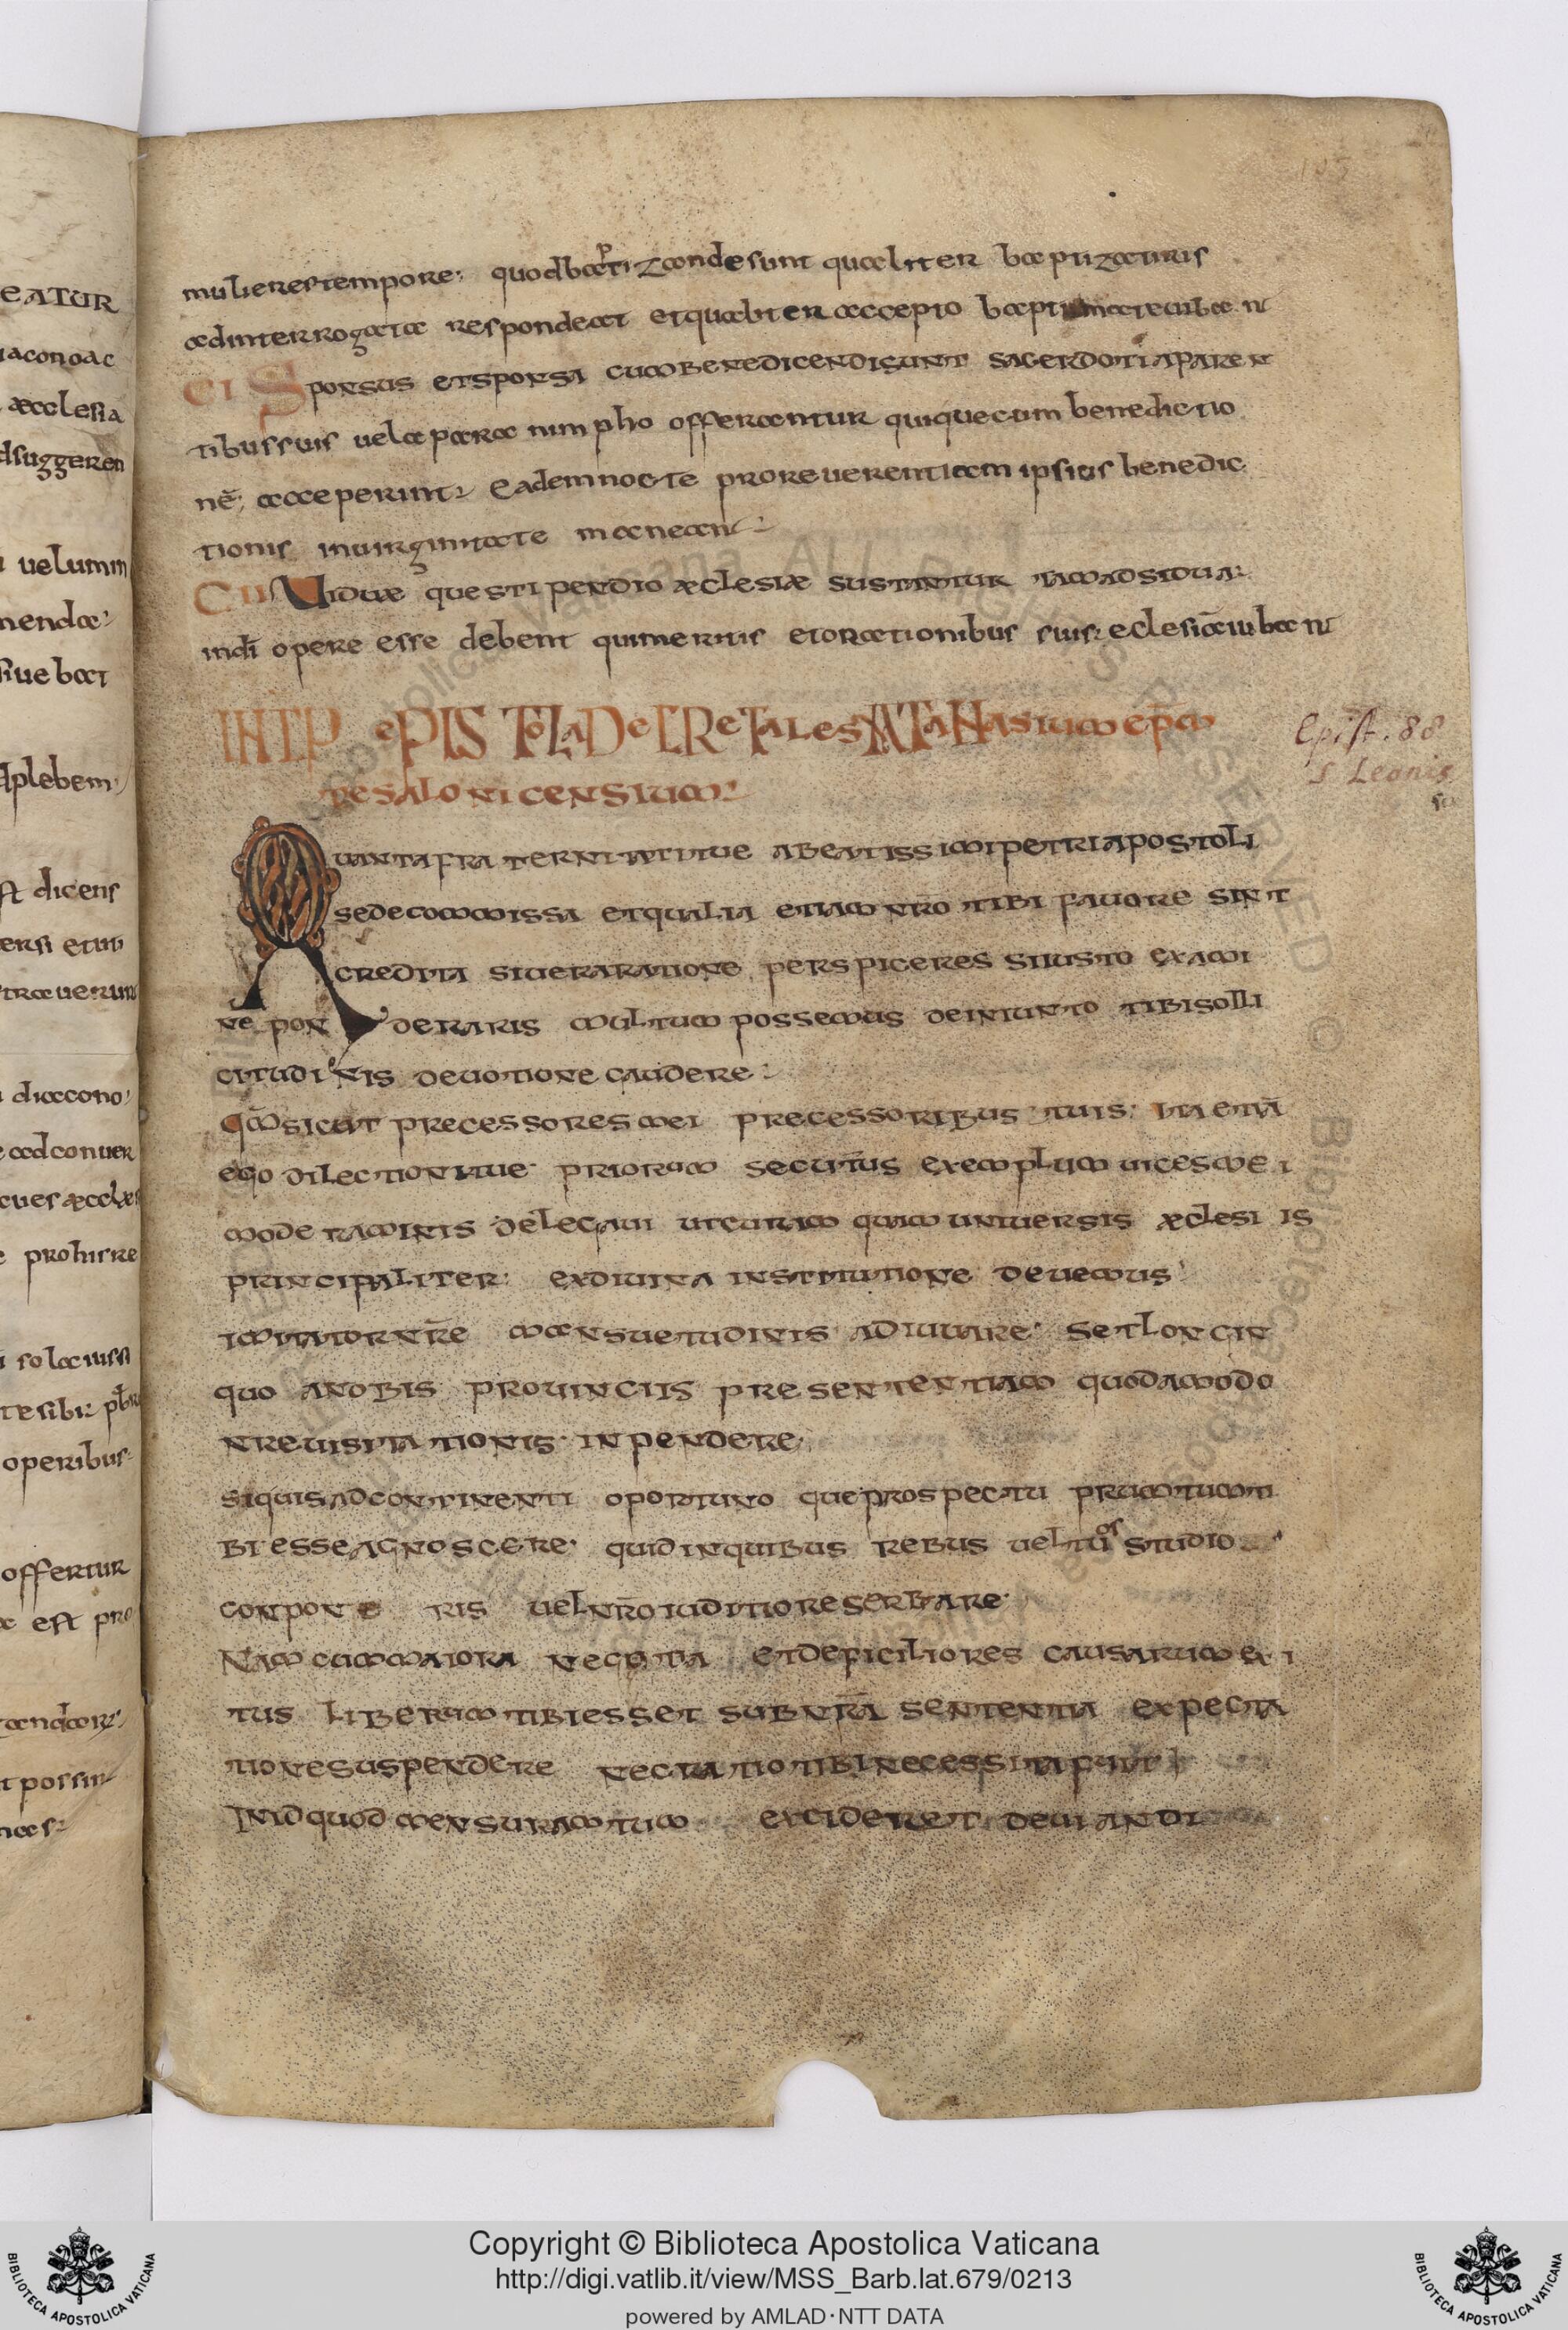 EATUR
uaconoac
æcclesia
dsuggeren
uelumin
mendae
siuebat
Aplebem
st dicens
ersi etuit
trauerunt
diacono
adconuer
prohirre
solaiussi
operibus
offertur
est pro
possin
105
mulieres tempore: quod baptizande sunt qualiter baptizaturis
ad interrogata respondeat et qualiter accepto baptismate uibant
CI Sponsus et sponsa cum benedicendi sunt sacerdoti aparen
tibus suis uel aparanimpho offerantur qui que cum benedictio
nē; acceperint: eadem nocte pro reuerentiam ipsius benedic
tionis in uirginitate maneant:
CII Uiduae que stipendio æclesiæ sustintur tam adsidua:
in dī opere esse debent qui meritis et orationibus suis: eclesiā iubant
INTP ePISToLa DeCReTales ATaNasium epm
tesalonicensium:
Quanta fraternitati tue abeatissimi petri apostoli
sede commissa et qualia etiam nr̄o tibi fauore sint
credita si uera ratione perspiceres si iusto exami
ne pon deraris multum possemus de iniunto tibi solli
citudinis deuotione caudere:
Qm̄ sicut precessores mei precessoribus tuis: ita etiā
ego dilectioni tue priorum secutus exemplum uices mei
moderaminis delegaui ut curam quam uniuersis æclesiis
principaliter: ex diuina institutione deuemus
imitator nr̄e mansuetudinis adiuuare: Set loncin
quo anobis prouinciis presententiam quodamodo
nre uisitationis inpendere;
siquis ad continenti oportuno que prospectu prumtum ti
bi esse agnoscere: quid in quibus rebus uel tuos studio
conpone ris uel nr̄o iuditio reserbare
Nam cum maiora necotia et deficiliores causarum exi
tus liberum tibi esset sub nr̄a sententia expecta
tione suspendere nec ratio tibi necessita fuit
In id quod mensuram tum excideret deuiandi
Epist. 88
S Leonis
Copyright © Biblioteca Apostolica Vaticana
http://digi.vatlib.it/view/MSS_Barb.lat.679/0213
powered by AMLAD·NTT DATA
BIBLIOTECA APOSTOLICA VATICANA
BIBLIOTECA APOSTOLICA VATICANA